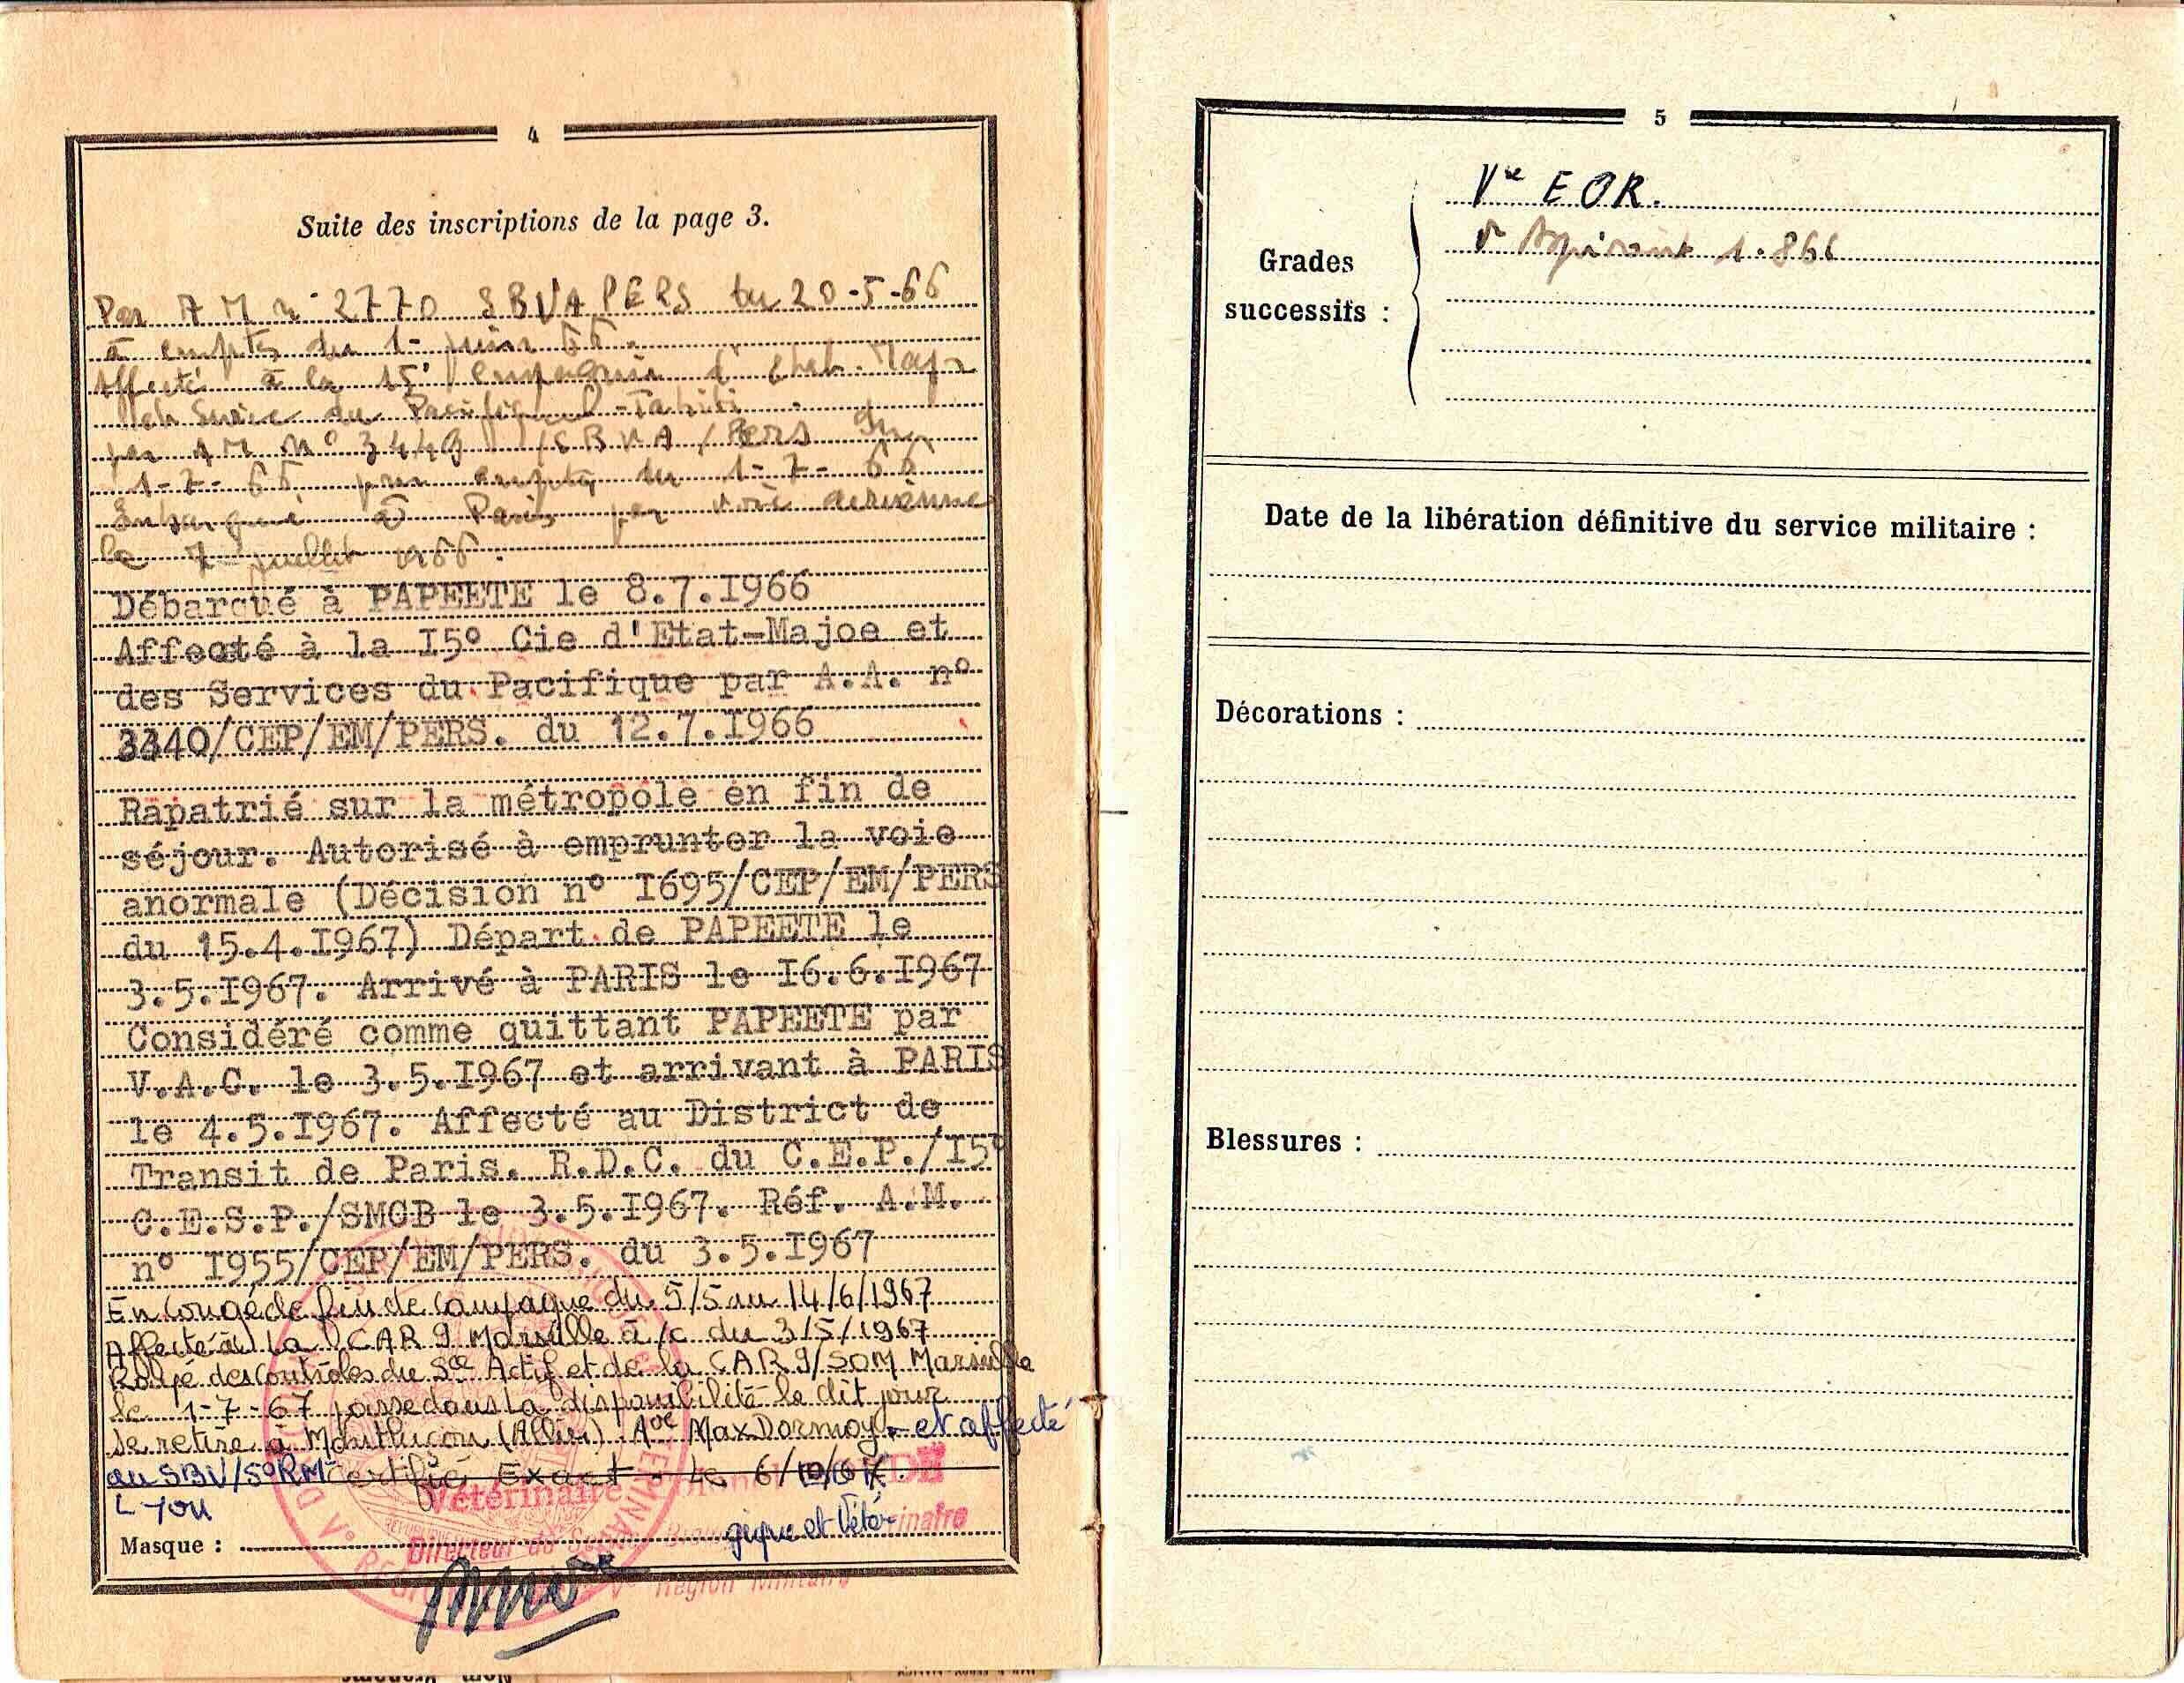 4
Suite des inscriptions de la page 3.
Per A M n° 2770 SBVA PERS du 20-5-66
à compter du 1- juin 66
Affecté à la 15° compagnie d'
Service du Pacifique - Tahiti
per AM N° 3449 /SBVA/Pers du
1-7-66 pour compter du 1-7-66
Embarqué à Paris par voie aérienne
le 7 juillet 1966.
Débarqué à PAPEETE le 8.7.I966
Affecté à la I5° Cie d'Etat-Majoe et
des Services du Pacifique par A.A. n°
3340/CEP/EM/PERS. du 12.7.I966
Rapatrié sur la métropole en fin de
séjour. Autorisé à emprunter la voie
anormale (Décision n° I695/CEP/EM/PERS
du 15.4.I967) Départ de PAPEETE le
3.5.I967. Arrivé à PARIS le I6.6.I967
Considéré comme quittant PAPEETE par
V.A.C. le 3.5.I967 et arrivant à PARIS
le 4.5.I967. Affecté au District de
Transit de Paris. R.D.C. du C.E.P./I5°
C.E.S.P./SMCB le 3.5.I967. Réf. A.M.
n° I955/CEP/EM/PERS. du 3.5.I967
En congé de fin de campagne du 5/5 au 14/6/1967
Affecté à la CAR 9 Marseille à /c du 3/5/1967
Rayé des contrôles du Sce Actif et de la CAR 9/SOM Marseille
le 1-7-67 passe dans la disponibilité le dit jour
se retire à Montluçon (Allier) Ave Max Dormoy - et affecté
au SBV/5°RM Certifié Exact - Le 6/10/67.
Lyon
Vétérinaire
gique et Vétérinaire
Masque :
Directeur du Service
Région Militaire
5
Grades
successifs :
Vre EOR.
Aspirant 1.866
Date de la libération définitive du service militaire :
Décorations :
Blessures :